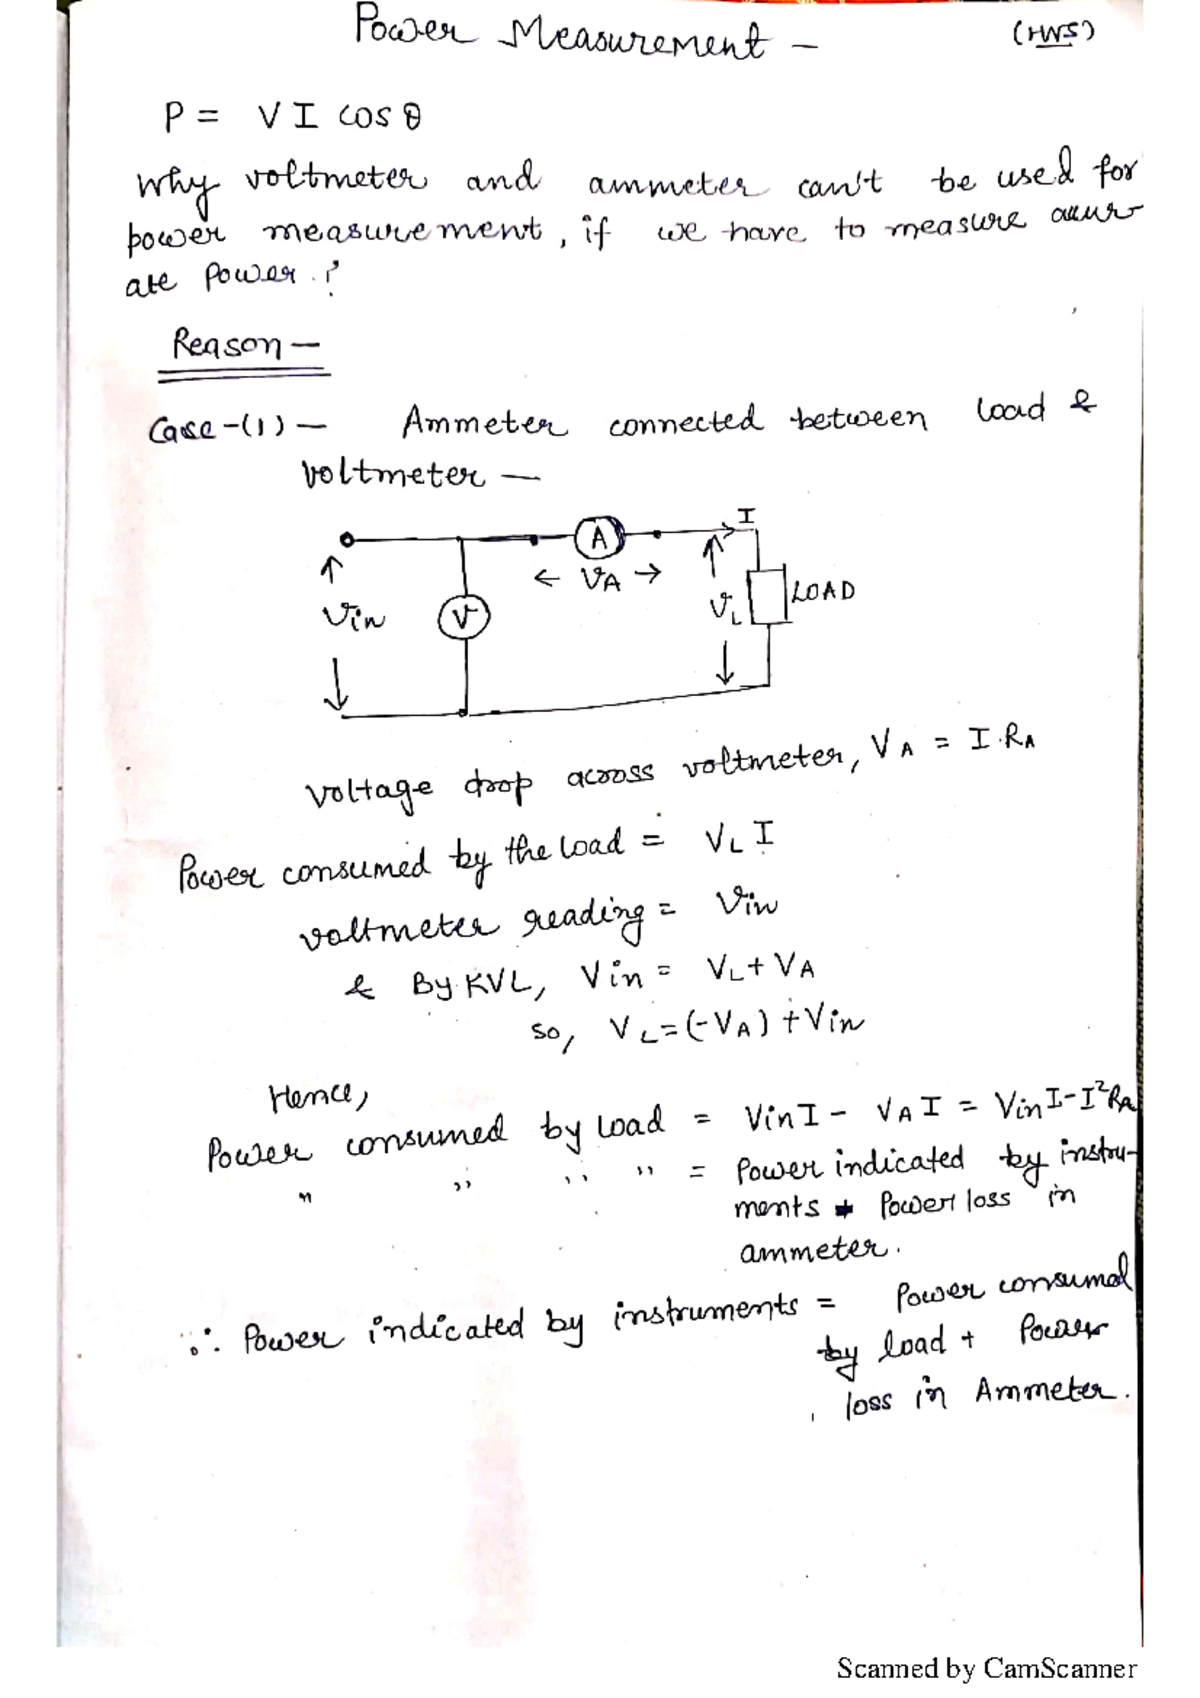 Power Measurement – (HWS)
P = V I cos θ
Why voltmeter and ammeter can't be used for
power measurement, if we have to measure accur-
ate Power.?
Reason –
Case-(1) – Ammeter connected between load &
voltmeter –
I
A
← VA →
Vin
V
VL
LOAD
Voltage drop across voltmeter, VA = I.RA
Power consumed by the load = VL I
voltmeter reading = Vin
& By KVL, Vin = VL + VA
so, VL = (-VA) + Vin
Hence,
Power consumed by load = Vin I - VA I = Vin I - I²RA
" " " " = Power indicated by instru-
ments - Power loss in
ammeter.
∴ Power indicated by instruments = Power consumed
by load + Power
loss in Ammeter.
Scanned by CamScanner